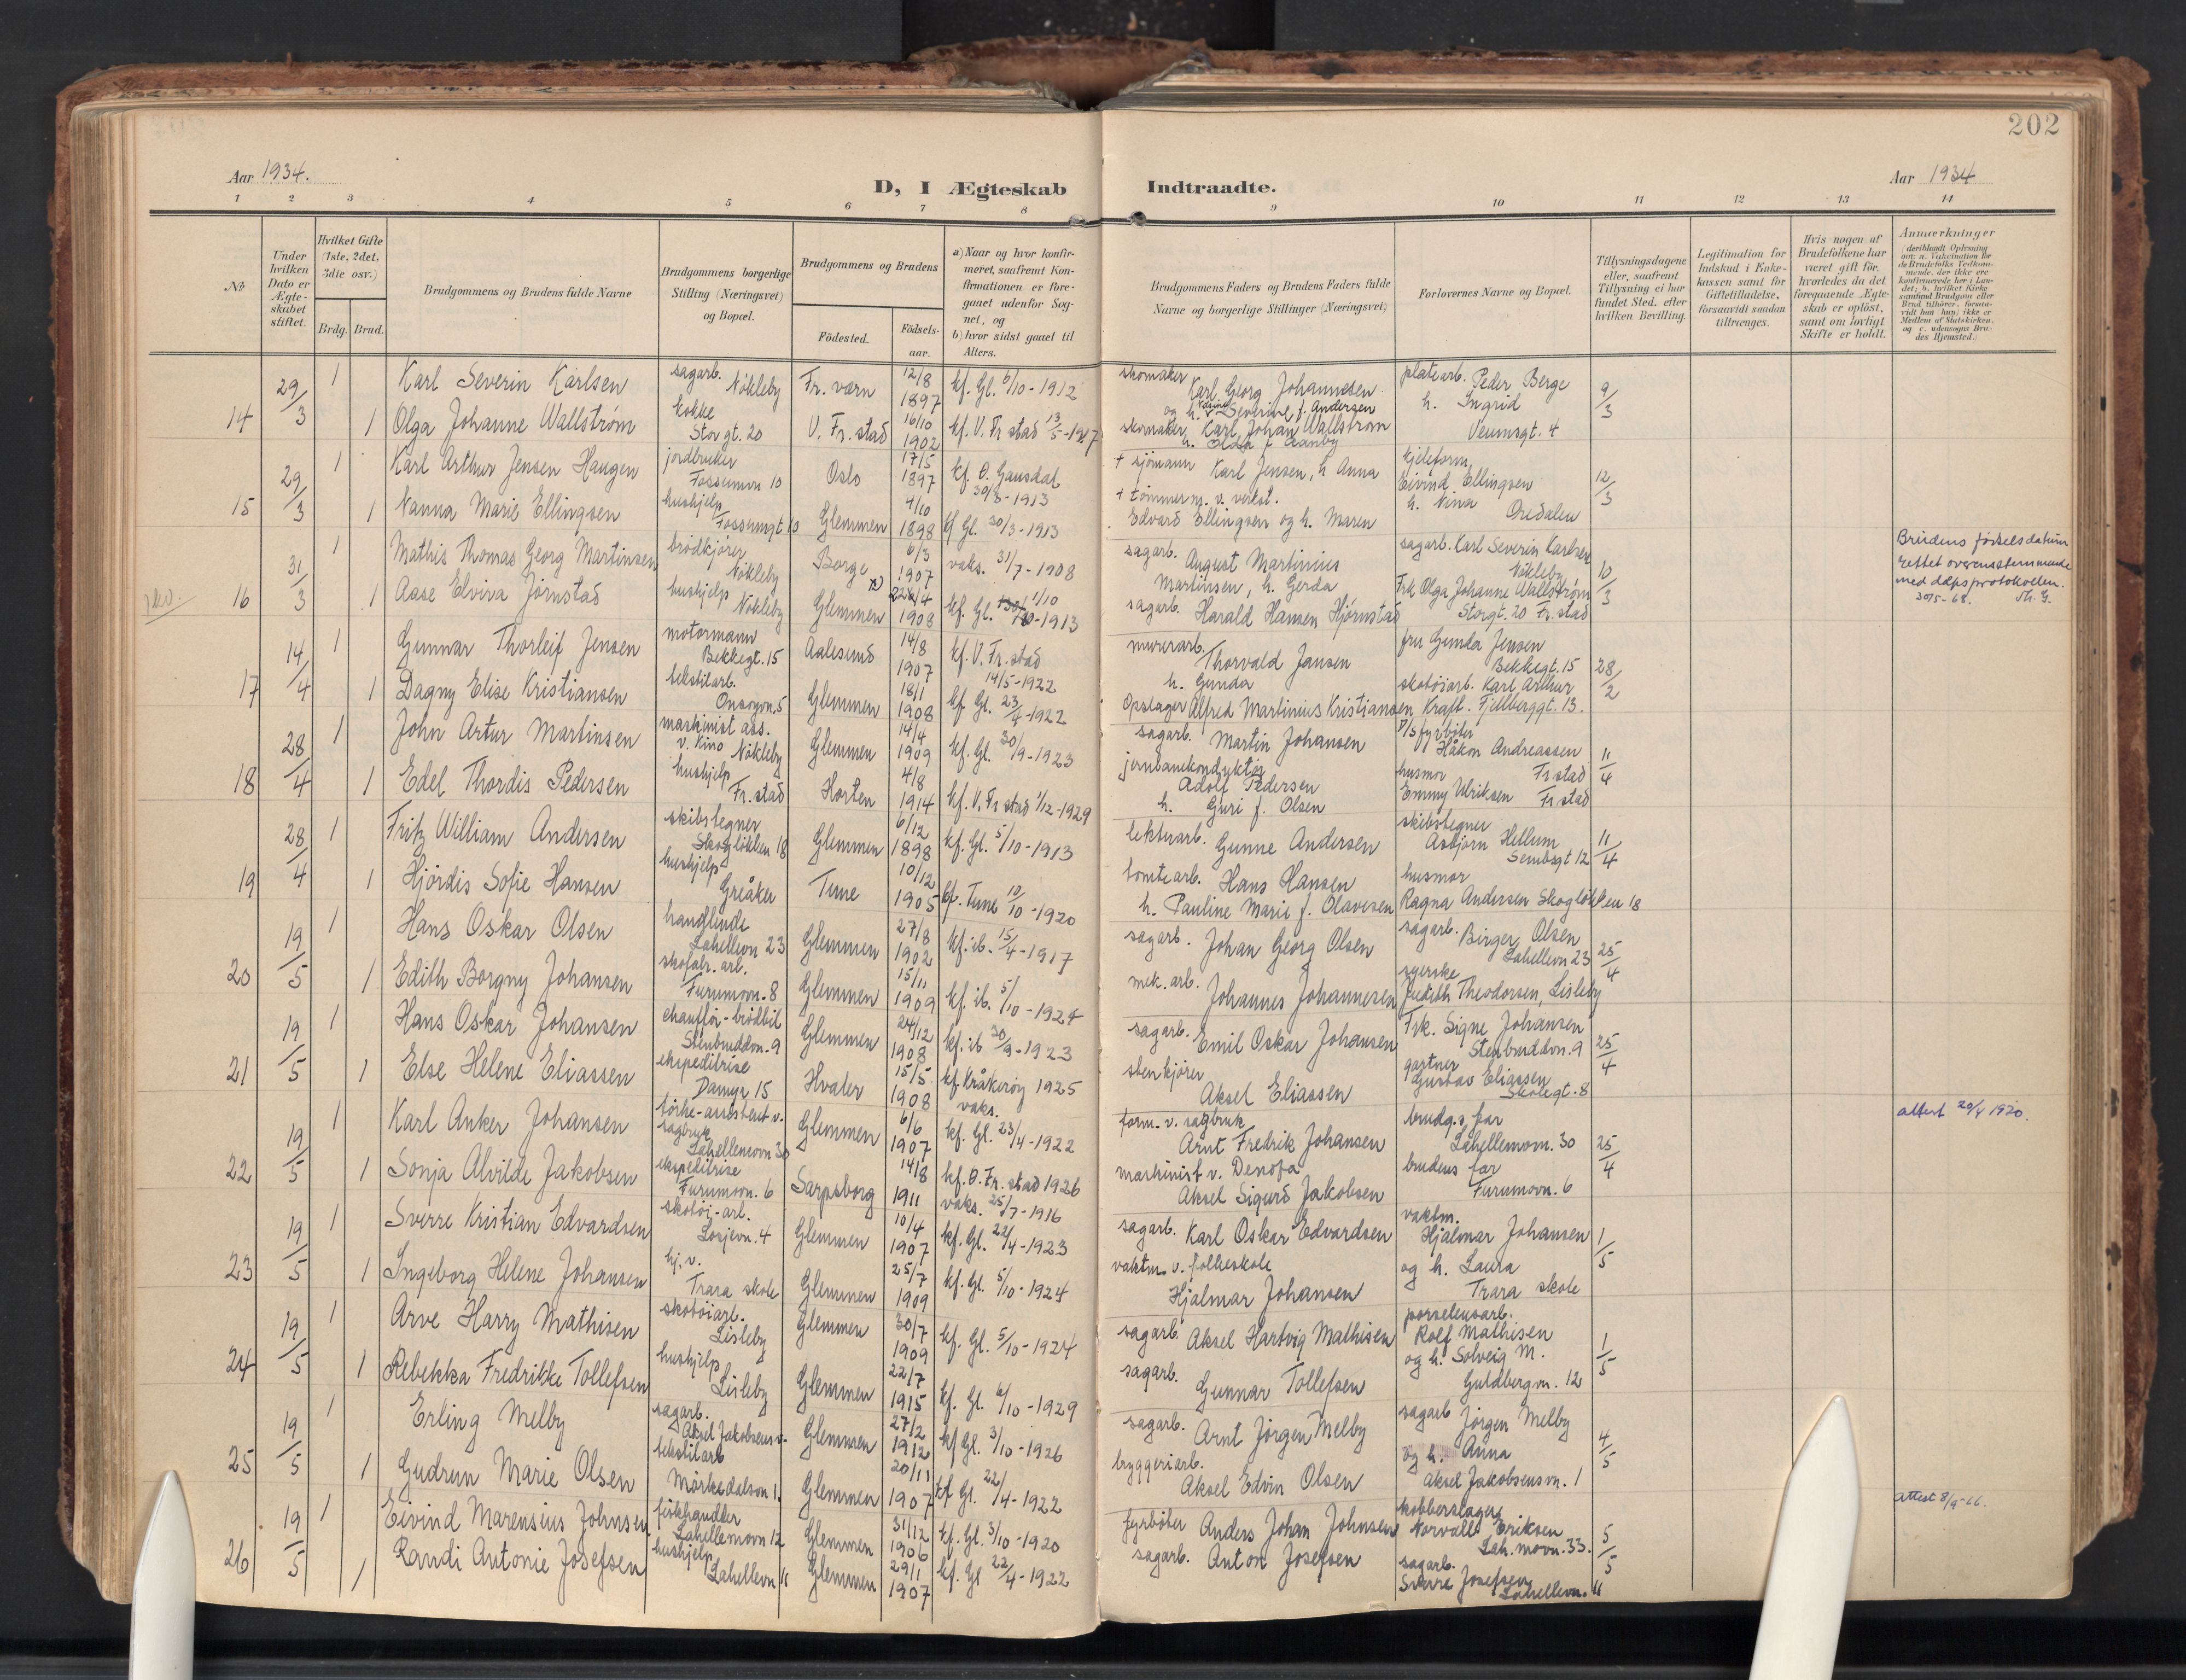 202
Aar 1934.
D, I Ægteskab Indtraadte.
Aar 1934
1 2 3 4 5 6 7 8 9 10 11 12 13 14
No
Under hvilken Dato er Ægteskabet stiftet.
Hvilket Gifte (1ste, 2det, 3die osv.)
Brdg. Brud.
Brudgommens og Brudens fulde Navne
Brudgommens borgerlige Stilling (Næringsvei) og Bopæl.
Brudgommens og Brudens
Födested.
Födselsaar.
a) Naar og hvor konfirmeret, saafremt Konfirmationen er foregaaet udenfor Sognet, og
b) hvor sidst gaaet til Alters.
Brudgommens Faders og Brudens Faders fulde Navne og borgerlige Stillinger (Næringsvei)
Forlovernes Navne og Bopæl.
Tillysningsdagene eller, saafremt Tillysning ei har fundet Sted, efter hvilken Bevilling.
Legitimation for Indskud i Enkekassen samt for Giftetilladelse, forsaavidt saadan tiltrænges.
Hvis nogen af Brudefolkene har været gift för, hvorledes da det foregaaende Ægteskab er oplöst, samt om lovligt Skifte er holdt.
Anmærkninger
14 29/3 1 Karl Severin Karlsen sagarb. Nökleby Fr.værn 12/8 1897 kf. Gl. 6/10-1912 skomaker Karl Georg Johannesen og h. Severine f. Andersen platearb. Peder Berge h. Ingrid 9/3
1 Olga Johanne Wallström kokke Storgt. 20 V. Fr.stad 16/10 1902 kf. V. Fr stad 13/5-1917 skomaker Karl Johan Wallström Veumsgt. 4
15 29/3 1 Karl Arthur Jensen Haugen jordbruker Fossumvn 10 Oslo 17/5 1897 kf. Ö. Gausdal 30/8-1913 + sjömann Karl Jensen, h Anna kjeleform. Eivind Ellingsen h. Nina Oredalen 12/3
1 Nanna Marie Ellingsen hushjelp Fossumgt 10 Glemmen 4/10 1898 kf Gl. 30/3-1913 + tömmerm. v. verkst. Edvard Ellingsen og h. Maren
16 31/3 1 Mathis Thomas Georg Martinsen brödkjörer Nökleby Borge 6/3 1907 vaks. 31/7-1908 sagarb. August Martinius Martinsen, h. Gerda sagarb. Karl Severin Karlsen Nökleby 10/3
1 Aase Elvira Jörnstad hushjelp Nökleby Glemmen 1908 kf. Gl. 1/10-1913 sagarb. Harald Hansen Hjörnstad Frk Olga Johanne Wallström Storgt. 20 Fr. stad
Brudens födselsdatum rettet overensstemmende med dåpsprotokollen. 30/5-68.
17 14/4 1 Gunnar Thorleif Jensen motormann Bekkegt. 15 Aalesund 14/8 1907 kf. V. Fr. stad 14/5-1922 murerarb. Thorvald Jansen h. Gunda fru Gunda Jensen Bekkegt. 15 28/2
1 Dagny Elise Kristiansen tekstilarb. Onsöyvn. 5 Glemmen 18/1 1908 kf Gl. 23/4-1922 Opslager Alfred Martinius Kristiansen skotöiarb. Karl Arthur Kraft. Fjellberggt. 13.
18 28/4 1 John Artur Martinsen maskinist ass. v. Kino Nökleby Glemmen 14/4 1909 kf. Gl. 30/9-1923 sagarb. Martin Johansen D/S fyrböter Håkon Andreassen Fr stad 11/4
1 Edel Thordis Pedersen hushjelp Fr. stad Horten 4/8 1914 kf. V. Fr stad 1/12-1929 jernbanekonduktör Adolf Pedersen h. Guri f. Olsen husmor Emmy Ulriksen Fr stad
19 28/4 1 Fritz William Andersen skibstegner Skoglökken 18 Glemmen 6/12 1898 kf. Gl. 5/10-1913 Gunne Andersen skibstegner Asbjörn Hellum Sembsgt 12 11/4
1 Hjördis Sofie Hansen hushjelp Greåker Tune 10/12 1905 kf. Tune 10/10-1920 tomtearb. Hans Hansen h. Pauline Marie f. Olavesen husmor Ragna Andersen Skoglökken 18
20 19/5 1 Hans Oskar Olsen handlende Lahellevn 23 Glemmen 27/8 1902 kf. ib. 15/4-1917 sagarb. Johan Georg Olsen sagarb. Birger Olsen Lahellevn 23 25/4
1 Edith Borgny Johansen skofabr. arb. Furumovn. 8 Glemmen 15/11 1909 kf. ib. 5/10-1924 mek. arb. Johannes Johannesen syerske Judith Theodorsen, Lisleby
21 19/5 1 Hans Oskar Johansen chaufför-brödbil Stenbruddvn. 9 Glemmen 24/12 1908 kf. ib 30/9-1923 sagarb. Emil Oskar Johansen Frk. Signe Johansen Stenbruddvn. 9 25/4
1 Else Helene Eliassen ekspeditrise Damyr 15 Hvaler 15/5 1908 kf. Kråkeröy 1925 vaks. stenkjörer Aksel Eliassen gartner Gustav Eliassen Skolegt. 8
22 19/5 1 Karl Anker Johansen törke-assistent v. sagbruk Lahellemovn 30 Glemmen 6/6 1907 kf. Gl. 23/4-1922 form. v. sagbruk Arnt Fredrik Johansen brudg.s far Lahellemovn. 30 25/4 attest 20/4 1920.
1 Sonja Alvilde Jakobsen ekspeditrise Furumovn. 6 Sarpsborg 14/8 1911 kf. Ö. Fr. stad 1926 vaks. 25/7-1916 maskinist v. Denofa Aksel Sigurd Jakobsen brudens far Furumovn. 6
23 19/5 1 Sverre Kristian Edvardsen skotöi-arb. Losjevn. 4 Glemmen 10/4 1907 kf. Gl. 22/4-1923 sagarb. Karl Oskar Edvardsen vaktm. Hjalmar Johansen og h. Laura Trara skole 1/5
1 Ingeborg Helene Johansen hj. v. Trara skole Glemmen 25/7 1909 kf. Gl. 5/10-1924 vaktm. v. folkeskole Hjalmar Johansen
24 19/5 1 Arve Harry Mathisen skotöiarb. Lisleby Glemmen 30/7 1909 kf. Gl. 5/10-1924 sagarb. Aksel Hartvig Mathisen porselensarb. Rolf Mathisen og h. Solveig M. Guldbergvn. 12 1/5
1 Rebekka Fredrikke Tollefsen hushjelp Lisleby Glemmen 22/7 1915 kf. Gl. 6/10-1929 sagarb. Gunnar Tollefsen
25 19/5 1 Erling Melby sagarb. Aksel Jakobsens v. Glemmen 27/2 1912 kf Gl. 3/10-1926 sagarb. Arnt Jörgen Melby sagarb Jörgen Melby og h. Anna Aksel Jakobsens vn. 1 4/5
1 Gudrun Marie Olsen tekstilarb Mörkedalsvn 1. Glemmen 20/11 1907 kf Gl. 22/4-1922 bryggeriarb. Aksel Edvin Olsen
26 19/5 1 Eivind Marensius Johnsen fiskhandler Lahellemovn 12 Glemmen 31/12 1906 kf. Gl. 3/10-1920 fyrböter Anders Johan Johnsen kobberslager Norvall Eriksen Lah. movn. 33. 5/5 attest 8/9-66.
1 Randi Antonie Josefsen hushjelp Lahellevn 11 Glemmen 29/1 1907 kf. Gl 22/4-1922 sagarb. Anton Josefsen sagarb. Sverre Josefsen Lahellevn. 11